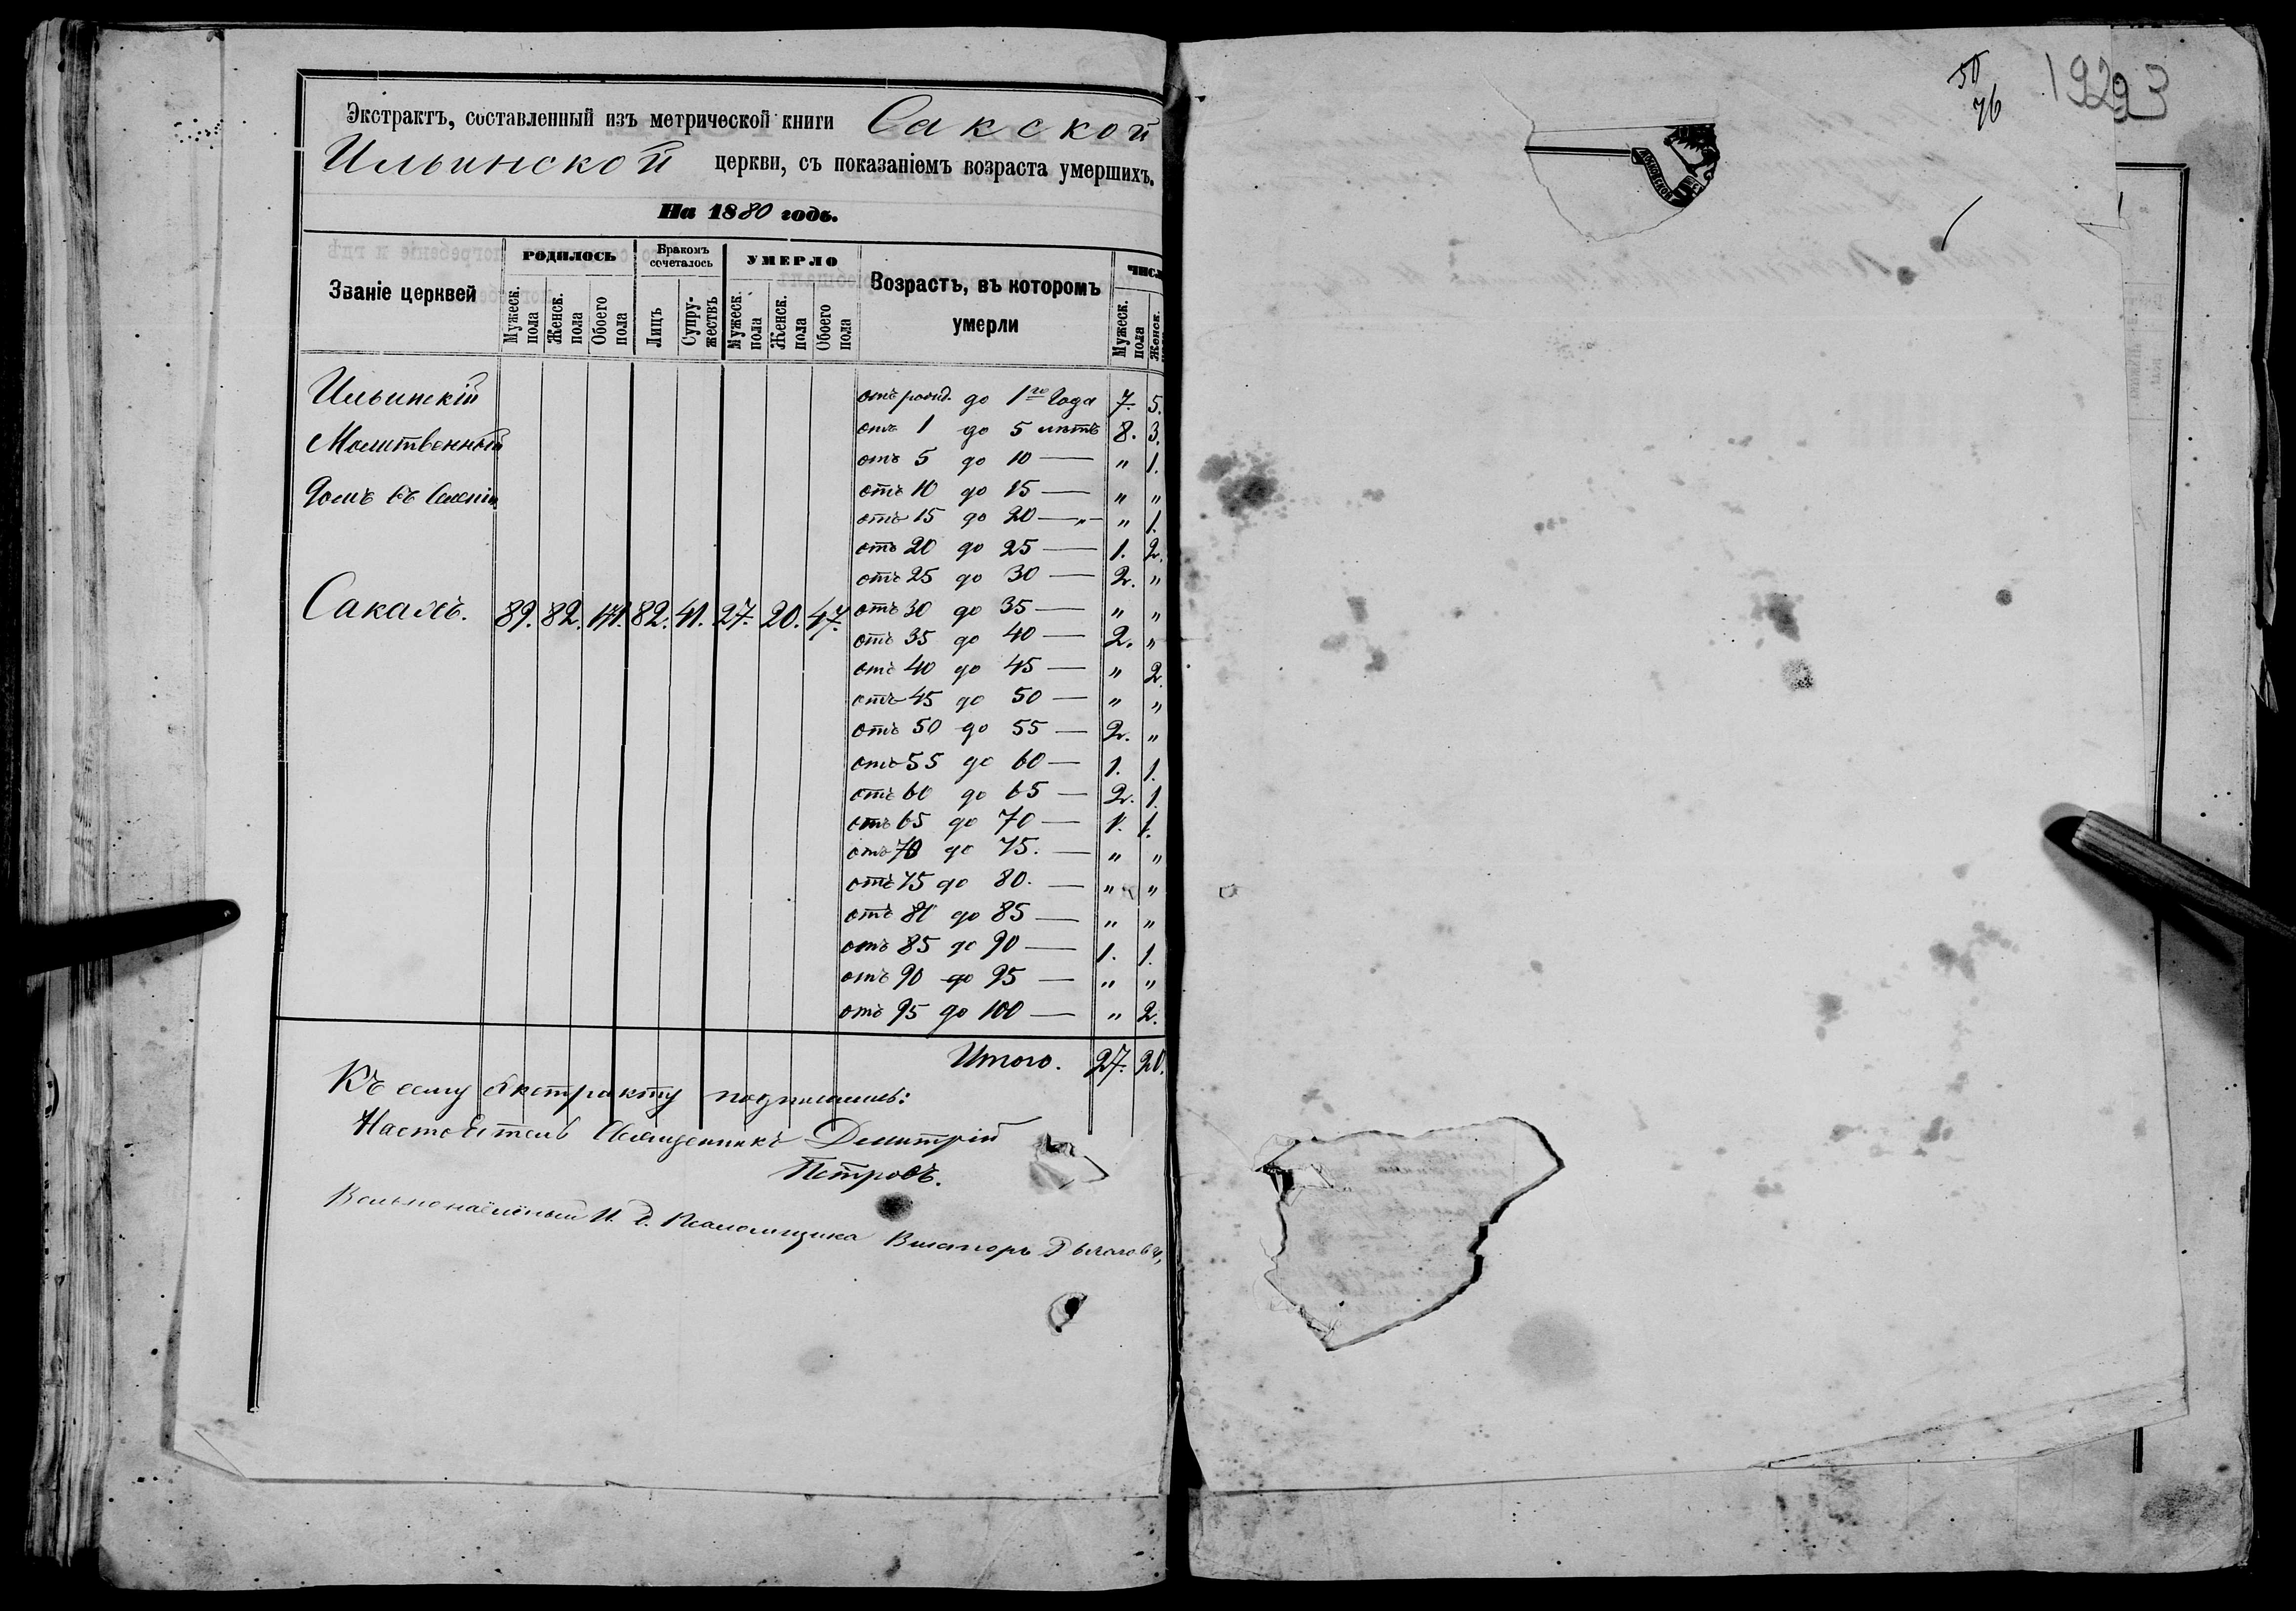 Экстрактъ, составленный изъ метрической книги Сакской
Ильинской церкви, съ показаніемъ возраста умершихъ.
На 1880 годъ.
Званіе церквей
РОДИЛОСЬ
Мужеск. пола
Женск. пола
Обоего пола
Бракомъ сочеталось
Лицъ
Супружествъ
УМЕРЛО
Мужеск. пола
Женск. пола
Обоего пола
Возрастъ, въ которомъ
умерли
Мужеск. пола
Женск.
Ильинскій
Молитвенный
Домъ въ
Сакахъ. 89. 82. 171. 82. 41. 27. 20. 47.
отъ рожд. до 1го года 7. 5.
отъ 1 до 5 лѣтъ 8. 3.
отъ 5 до 10 — " 1.
отъ 10 до 15 — " "
отъ 15 до 20 —"— " 1.
отъ 20 до 25 — 1. 2.
отъ 25 до 30 — 2. "
отъ 30 до 35 — " "
отъ 35 до 40 — 2. "
отъ 40 до 45 — " 2.
отъ 45 до 50 — " "
отъ 50 до 55 — 2. "
отъ 55 до 60 — 1. 1.
отъ 60 до 65 — 2. 1.
отъ 65 до 70 — 1. 1.
отъ 70 до 75. — " "
отъ 75 до 80. — " "
отъ 80 до 85 — " "
отъ 85 до 90 — 1. 1.
отъ 90 до 95 — " "
отъ 95 до 100 — " 2.
Итого. 27. 20.
Къ сему экстракту подписались:
Настоятель Священникъ Димитрій
Петровъ.
Вольнонаёмный И. д. Псаломщика Викторъ
50
76